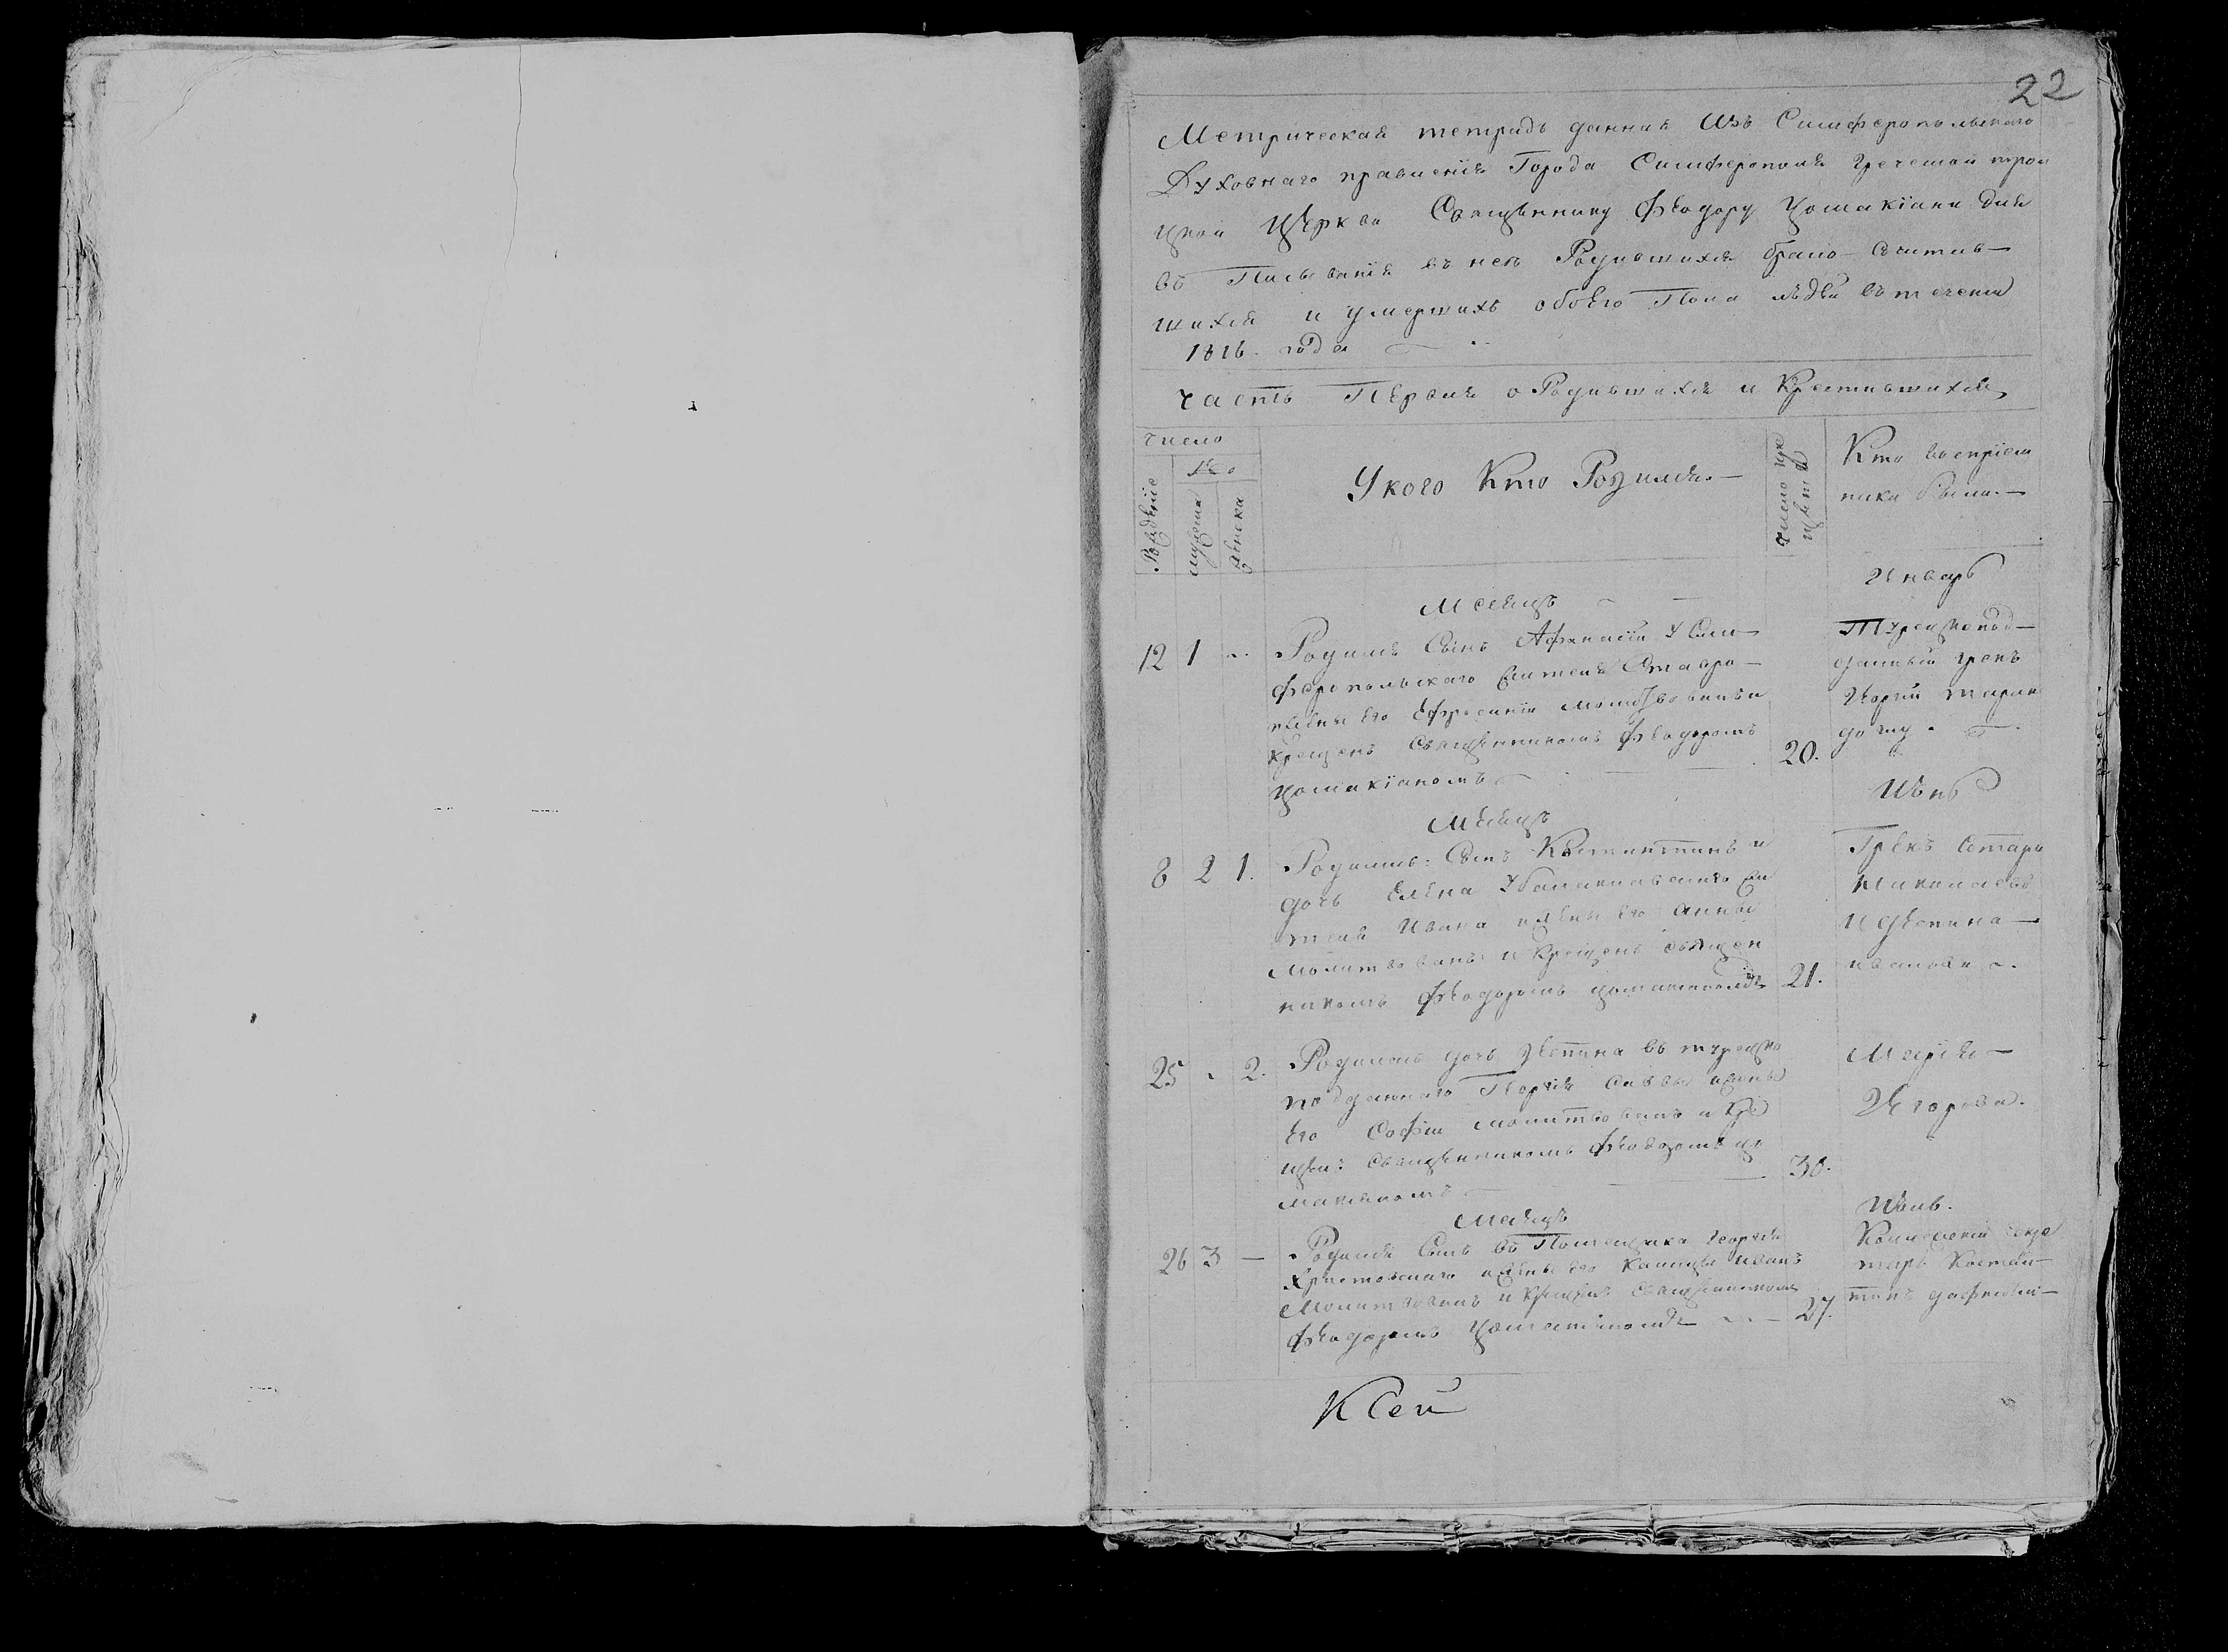 22
Метрическая тетрадь данная Изъ Симферопольскаго
Духовнаго правленія Города Симферополя греческой трои
цкой Церкви Священнику Феодору Цомакіани для
въ Писыванія въ нея Родившихся брако-Сочитав-
шихся и умершихъ обоего Пола людей въ теченіи
1816. года
часть Первая о Родившихся и Крестившихся
число
Рожденіе
мужеска
женска
У кого Кто Родился.
Число кре
щенія
Кто воспріем
ники были.
Месяцъ
Январь
12 1
Родился Сынъ Афанасій У Сим-
феропольскаго жителя Ставро-
жены его Ефросиніи молитвованъ и
крещенъ Священникомъ Феодоромъ
Цомакіаномъ
20.
Турецкопод-
данный грекъ
Месяцъ
Июнь
8 2 1.
Родились: Сынъ Костантинъ и
дочь Елена У балаклавскаго жи
теля Ивана жены его Анны
Молитвованъ и Крещенъ священ
никомъ Феодоромъ
21.
Грекъ
Николаевъ
25 2.
Родилась дочь въ турецко
подданнаго Георгія Саввы жены
его Софіи молитвованъ и кре
щенъ Священникомъ Феодоромъ цо
макіаномъ
30.
Марія
Егорова.
месяцъ
Июль.
26 3
Родился Сынъ въ Помещика Георгія
жены его Иванъ
Молитвованъ и Крещенъ Священникомъ
Феодоромъ
27.
Коллежскій секре
тарь Костан-
тинъ
К Сей